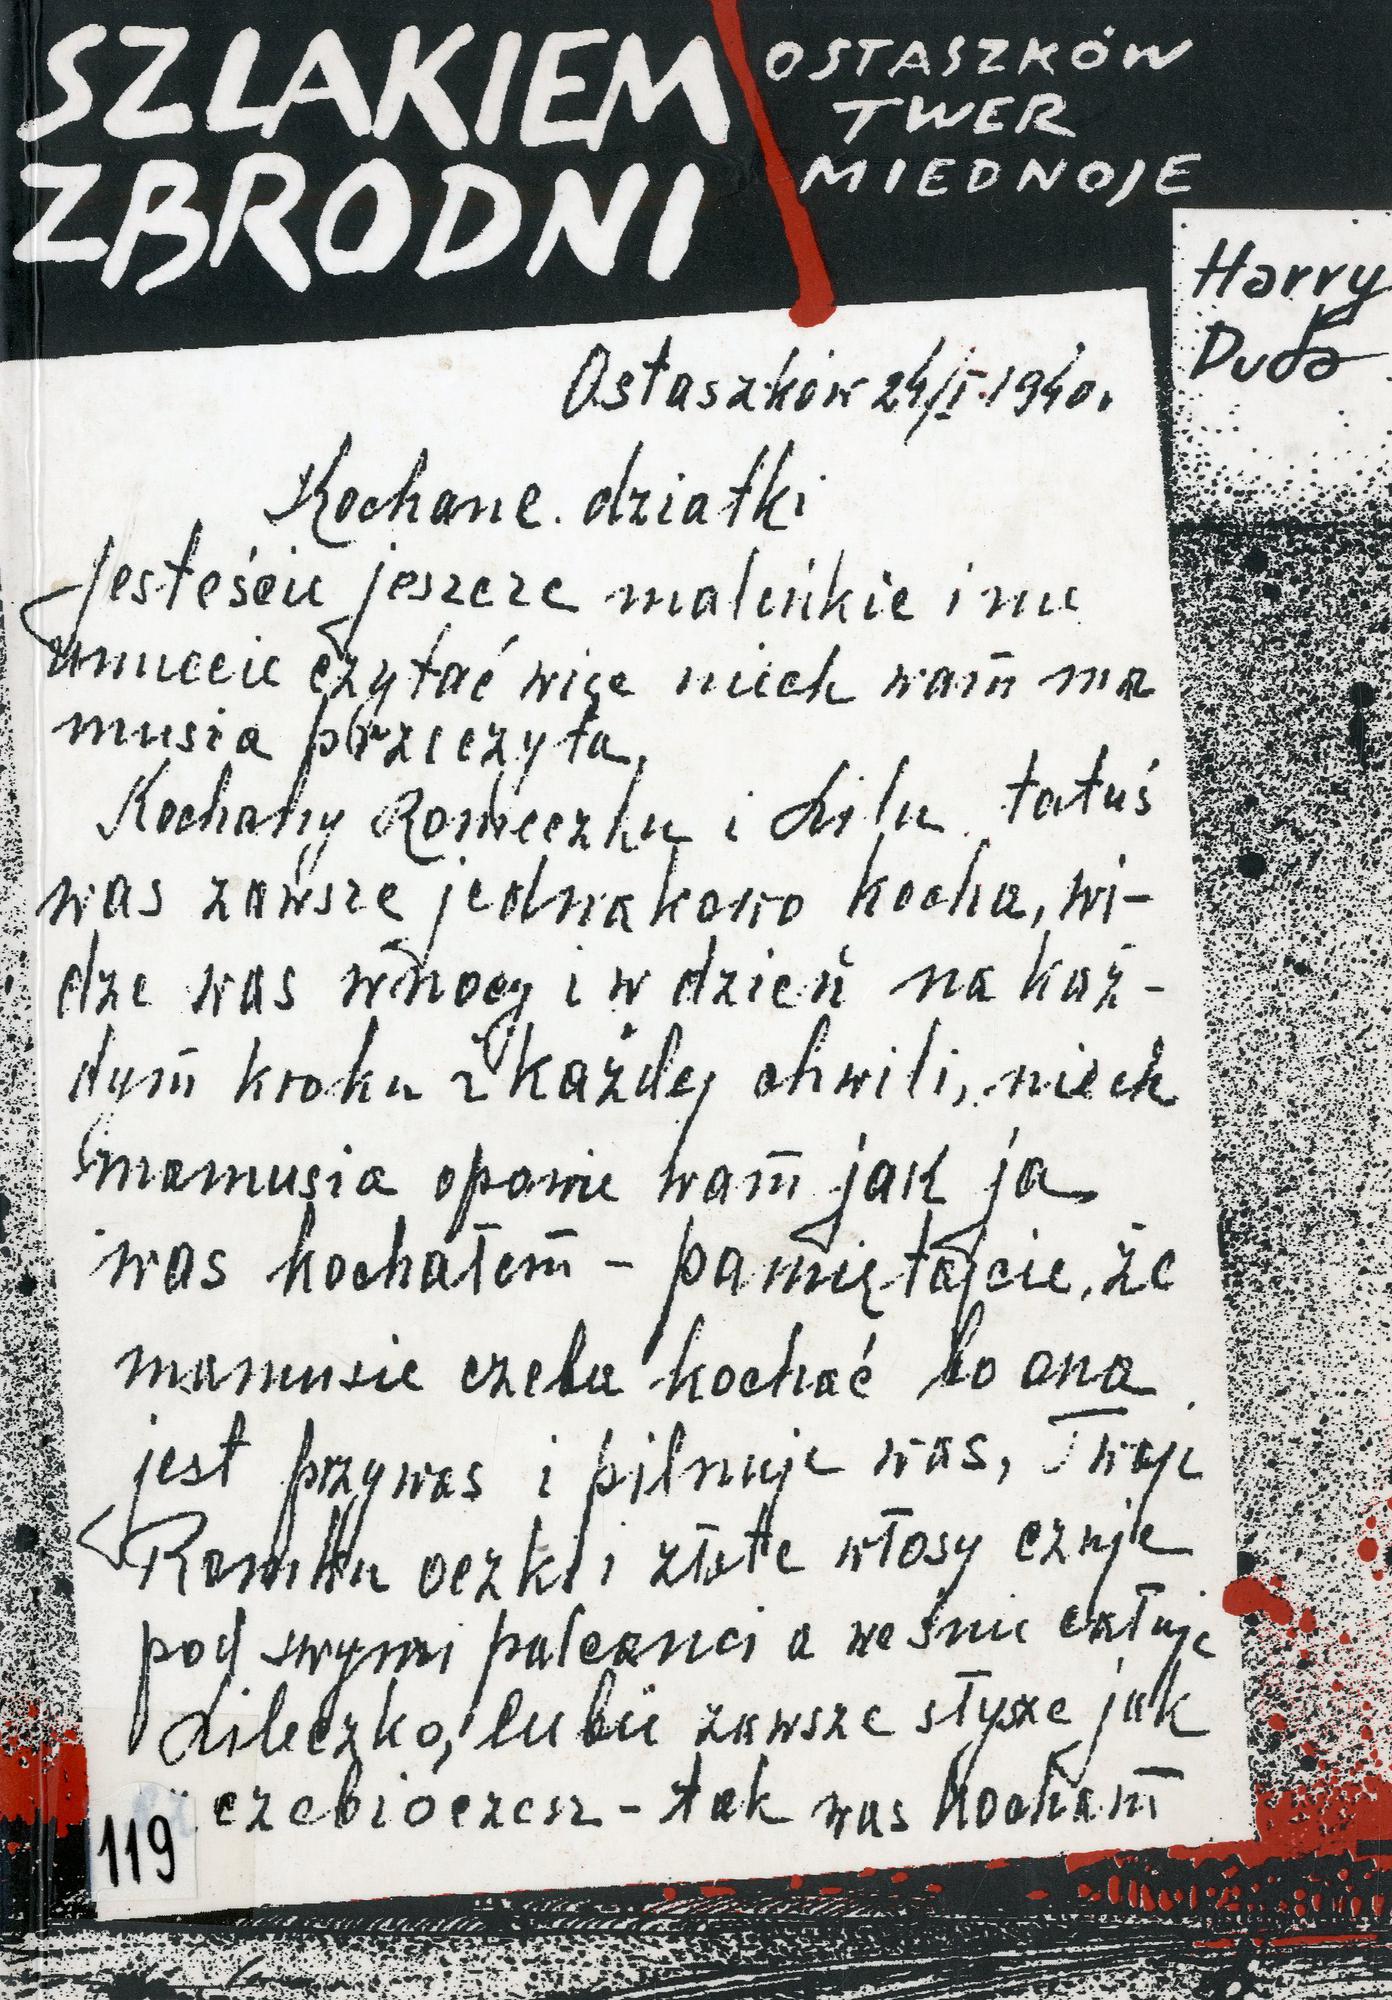 SZLAKIEM
ZBRODNI
OSTASZKÓW
TWER
MIEDNOJE
Harry
Duda
Ostaszków 24/I.1940.
Kochane dziatki
Jesteście jeszcze maleńkie i nie
umiecie czytać więc niech wam ma
musia przeczyta,
Kochany Romeczku i Lilu tatuś
was zawsze jednakowo kocha, wi-
dze was w nocy i w dzień na każ-
dym kroku i każdej chwili, niech
mamusia opowie wam jak ja
was kochałem - pamiętajcie, że
mamusie czeba kochać bo ona
jest przy was i pilnuje was, Twoje
Romku oczki i złote włosy czuje
pod swymi palcami a we śnie całuje
Lileczko, ciebie zawsze słysze jak
czebioczesz - tak was kocham
119